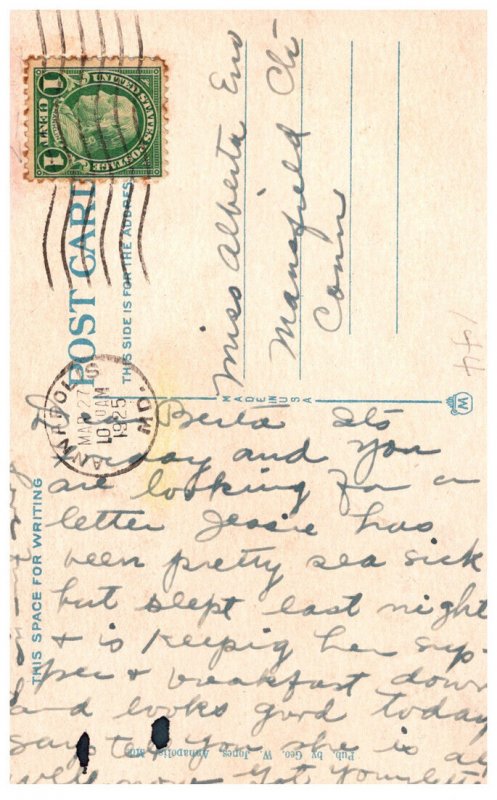 UNITED STATES POSTAGE
1 CENT 1
POST CARD
THIS SIDE IS FOR THE ADDRESS
ANNAPOLIS
MAR 27
10 AM
1925
MD.
Miss Alberta Eno
Mansfield
Conn
144
MADE IN USA
M
THIS SPACE FOR WRITING
Its
day and you
are looking for a
letter Jessie has
been pretty sea sick
but slept last night
+ is keepig her sup-
per + breakfast down
and looks good today
says tell you she is all
well now got your
Pub. by Geo. W. Jones, Annapolis, Md.